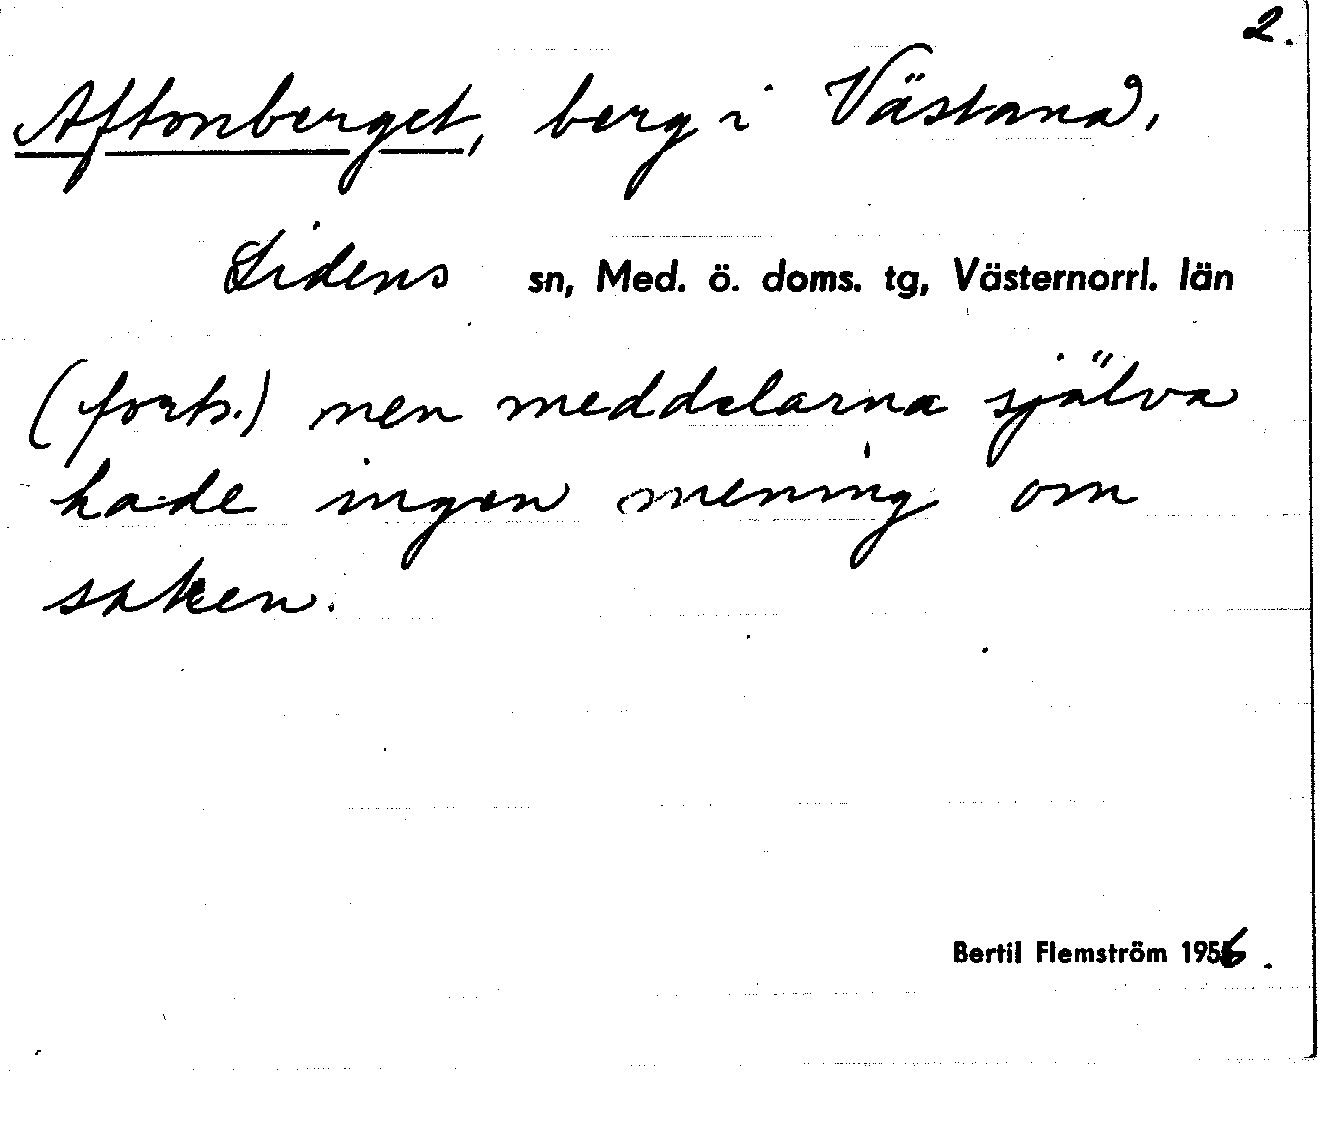 2.
Aftonberget, berg i Västanå,
Lidens sn, Med. ö. doms. tg, Västernorrl. län
(forts.) men meddelarna själva
hade ingen mening om
saken.
Bertil Flemström 1956.